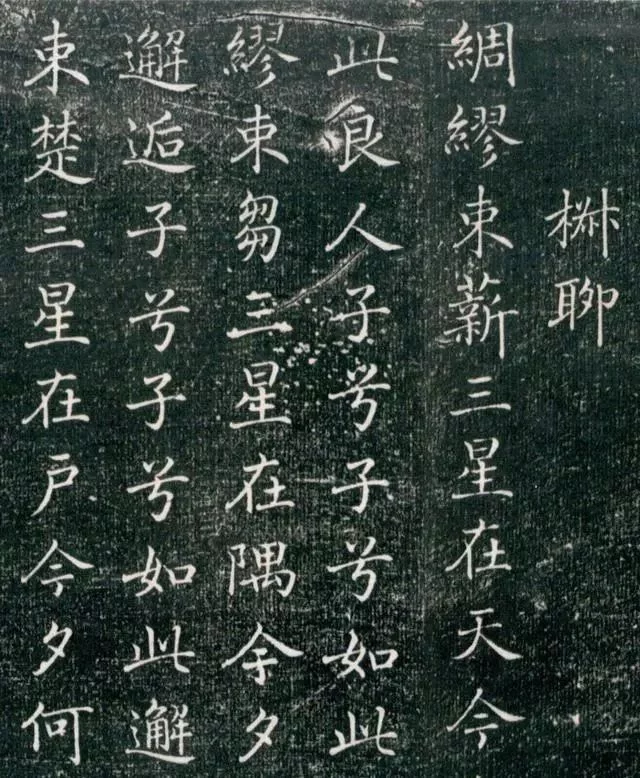 椒聊
綢繆束薪三星在天今
此良人子兮子兮如此
繆束芻三星在隅余夕
邂逅子兮子兮如此邂
束楚三星在戶今夕何